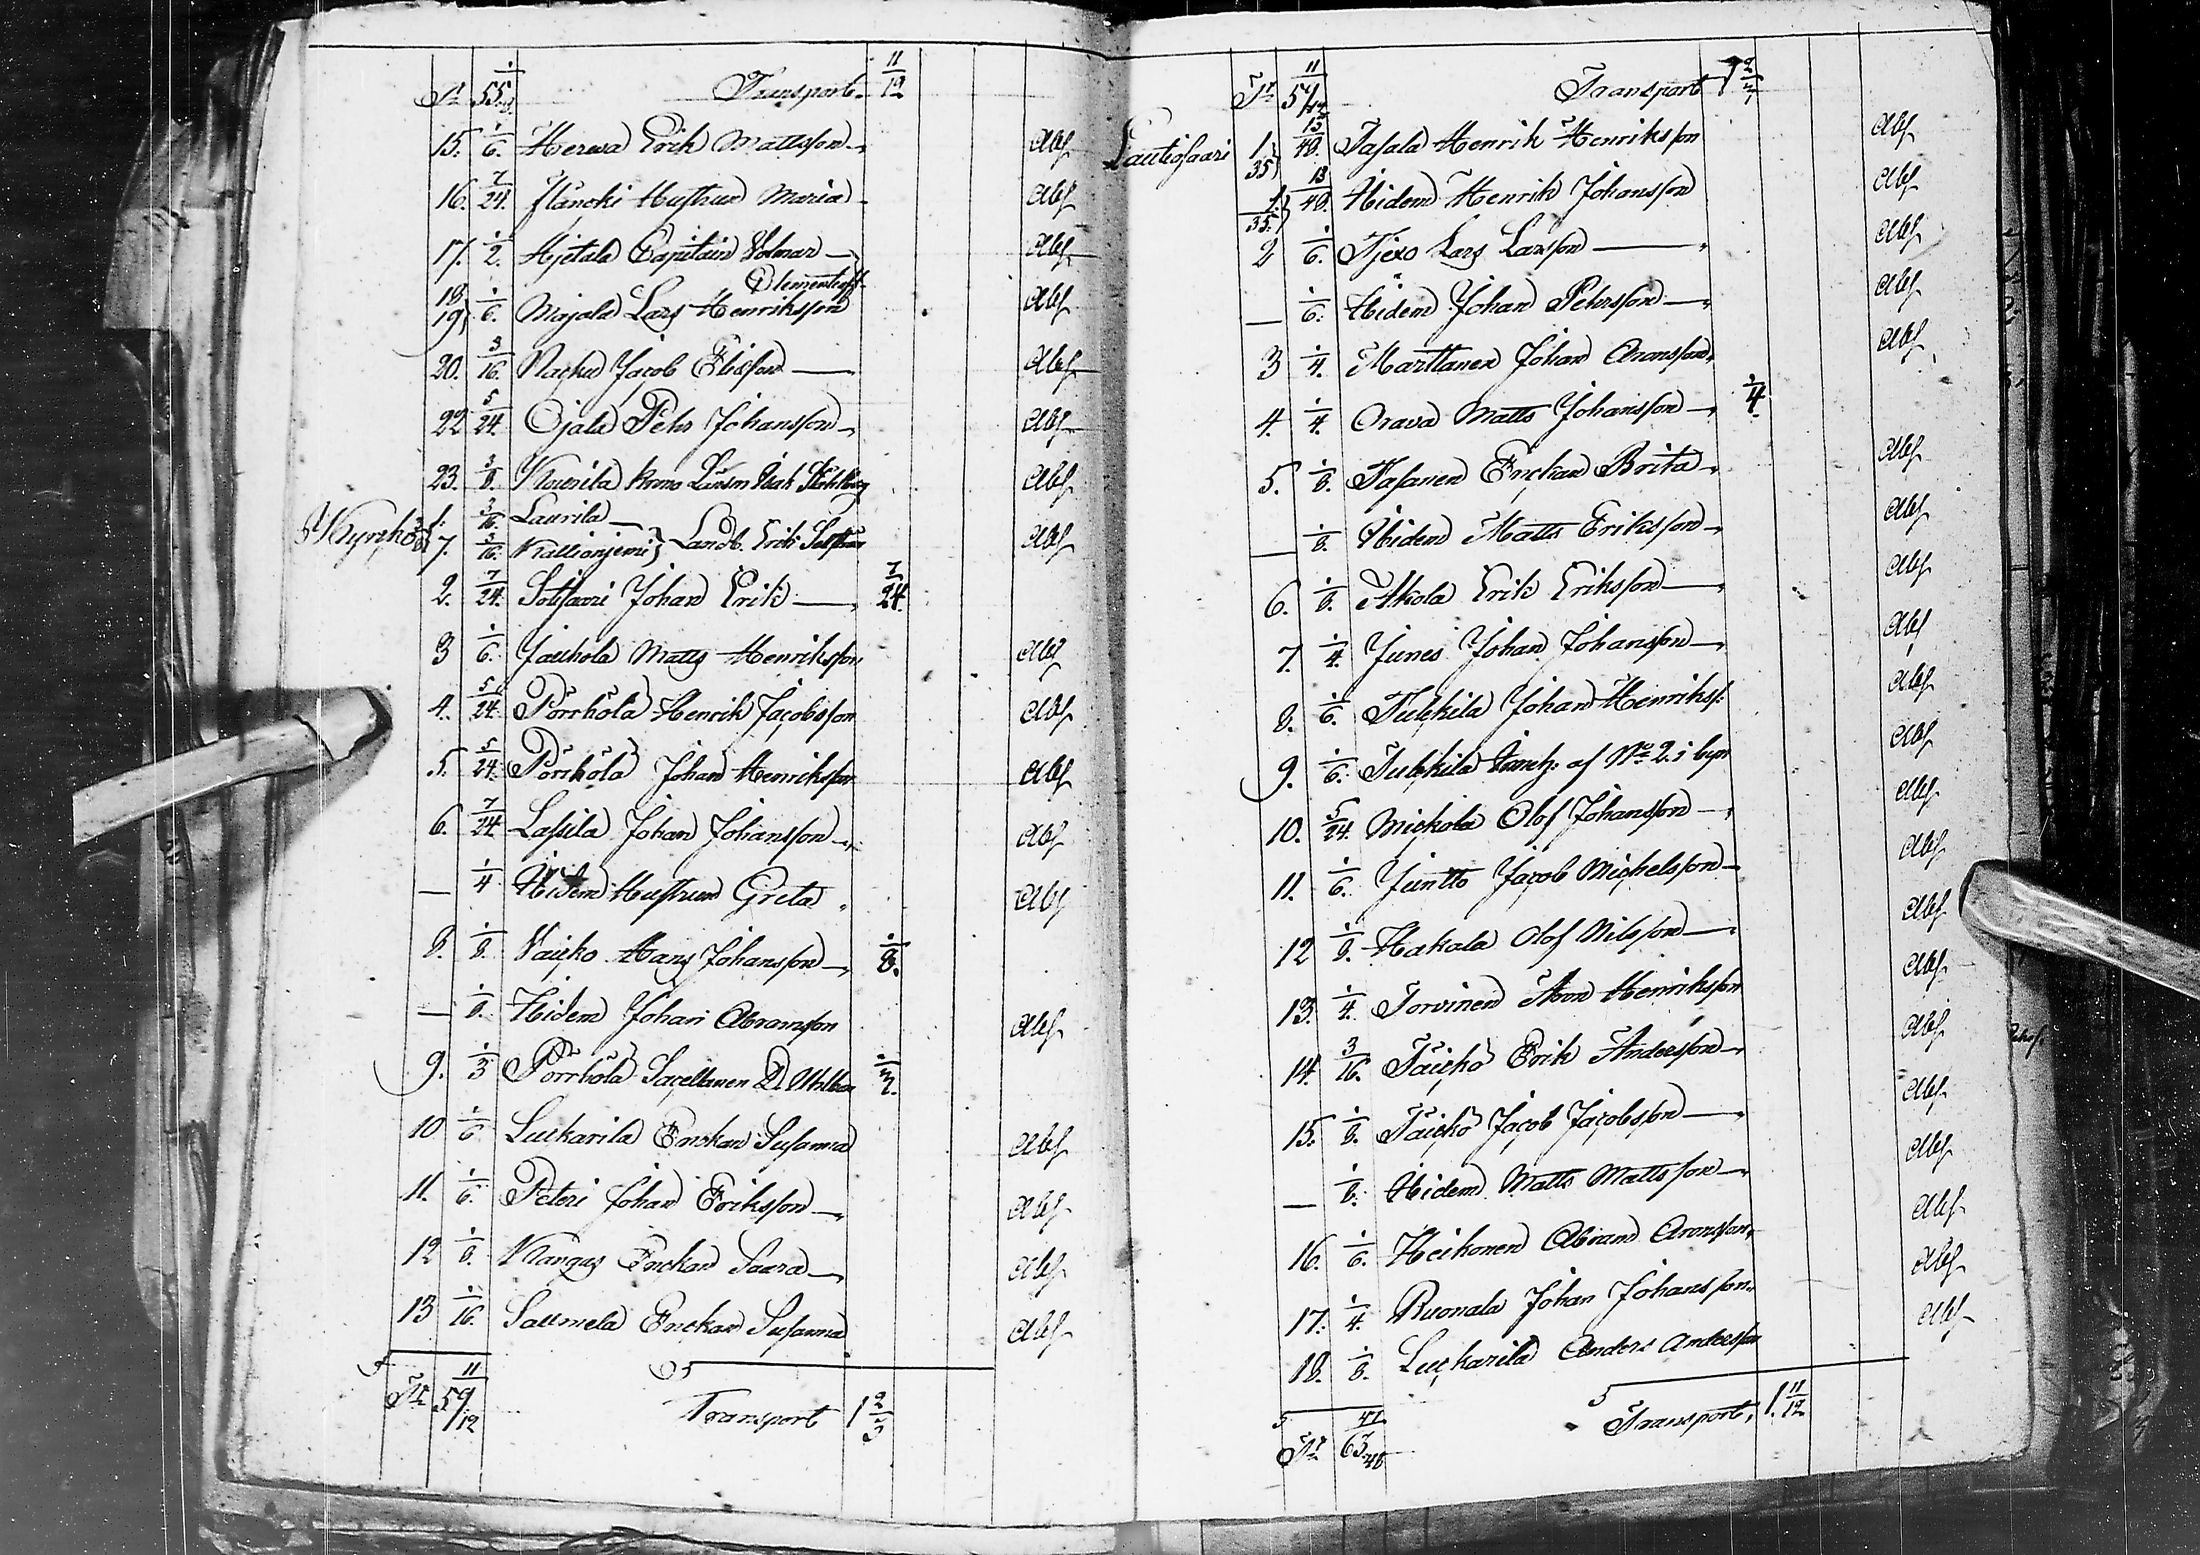 Tr 55 1/2 Transport 11/12
15. 1/6. Herwa Erik Mattsson Abs
16. 7/24. Hustrun Maria Abs
17. 1/2. Hjetala Capitain Volmar Abs
Clementeoff
18. 19. 1/6. Majala Lars Henriksson Abs
20. 3/16. Jacob Elisson Abs
22 5/24. Ojala Pehr Johansson Abs
23. 3/8. Kourila Abs
Kyrkö 1. 3/16. Laurila
7. 3/16. Kallionjemi Landb. Erik Abs
2. 7/24. Johan Erik 7/24.
3 1/6. Jauhola Matts Henriksson Abs
4. 5/24. Pörrhölä Henrik Jacobsson Abs
5. 5/24. Pörrhölä Johan Henriksson Abs
6. 7/24. Lassila Johan Johansson Abs
— 1/4 Hidem Hustrun Greta Abs
8. 1/8. Hans Johansson 1/8.
— 1/8. Hidem Johan Abramsson Abs
9. 1/3 Pörrhölä Sacellanen 1/3.
10 1/6 Luckarila Enckan Susanna Abs
11. 1/6. Peteri Johan Eriksson Abs
12 1/8. Kangas Enckan Saara Abs
13 1/16. Saumela Enckan Susanna Abs
Tr 59 11/12 Transport 1 2/3
Tr 59 11/12 Transport 1 2/3
Lautiosaari 1/35 13/48. Tasala Henrik Henriksson Abs
1/35. 13/48. Hidem Henrik Johansson Abs
2 1/6. Lars Larsson Abs
— 1/6. Hidem Johan Pehrsson Abs
3 1/4. Marttanen Johan Aronsson Abs
4. 1/4. Orava Matts Johansson 1/4.
5. 1/8. Enckan Brita Abs
— 1/8. Hidem Matts Eriksson Abs
6. 1/8. Erik Eriksson Abs
7. 1/4. Junes Johan Johansson Abs
8. 1/6. Tulckila Johan Henrikss: Abs
9. 1/6. Tulckila af No 2. i byn Abs
10. 5/24. Mickola Olof Johansson Abs
11. 1/6. Juntto Jacob Michelsson Abs
12 1/8. Hakala Olof Nilsson Abs
13. 1/4. Torvinen Aron Henriksson Abs
14. 3/16. Taicko Erik Andersson Abs
15. 1/8. Taicko Jacob Jacobsson Abs
— 1/8. Hidem Matts Mattsson Abs
16. 1/6. Heikonen Abram Aronsson Abs
17. 1/4. Ruonala Johan Johansson Abs
18. 1/8. Luckarila Anders Andersson Abs
Tr 63 47/48 Transport 1. 11/12